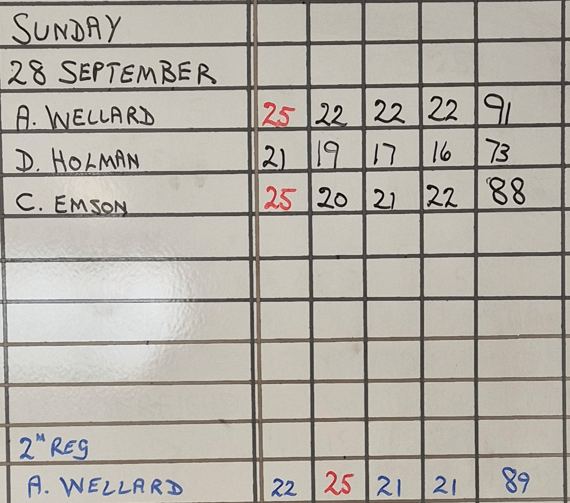 SUNDAY
28 SEPTEMBER
A. WELLARD 25 22 22 22 91
D. HOLMAN 21 19 17 16 73
C. EMSON 25 20 21 22 88
2ᴺ REG
A. WELLARD 22 25 21 21 89